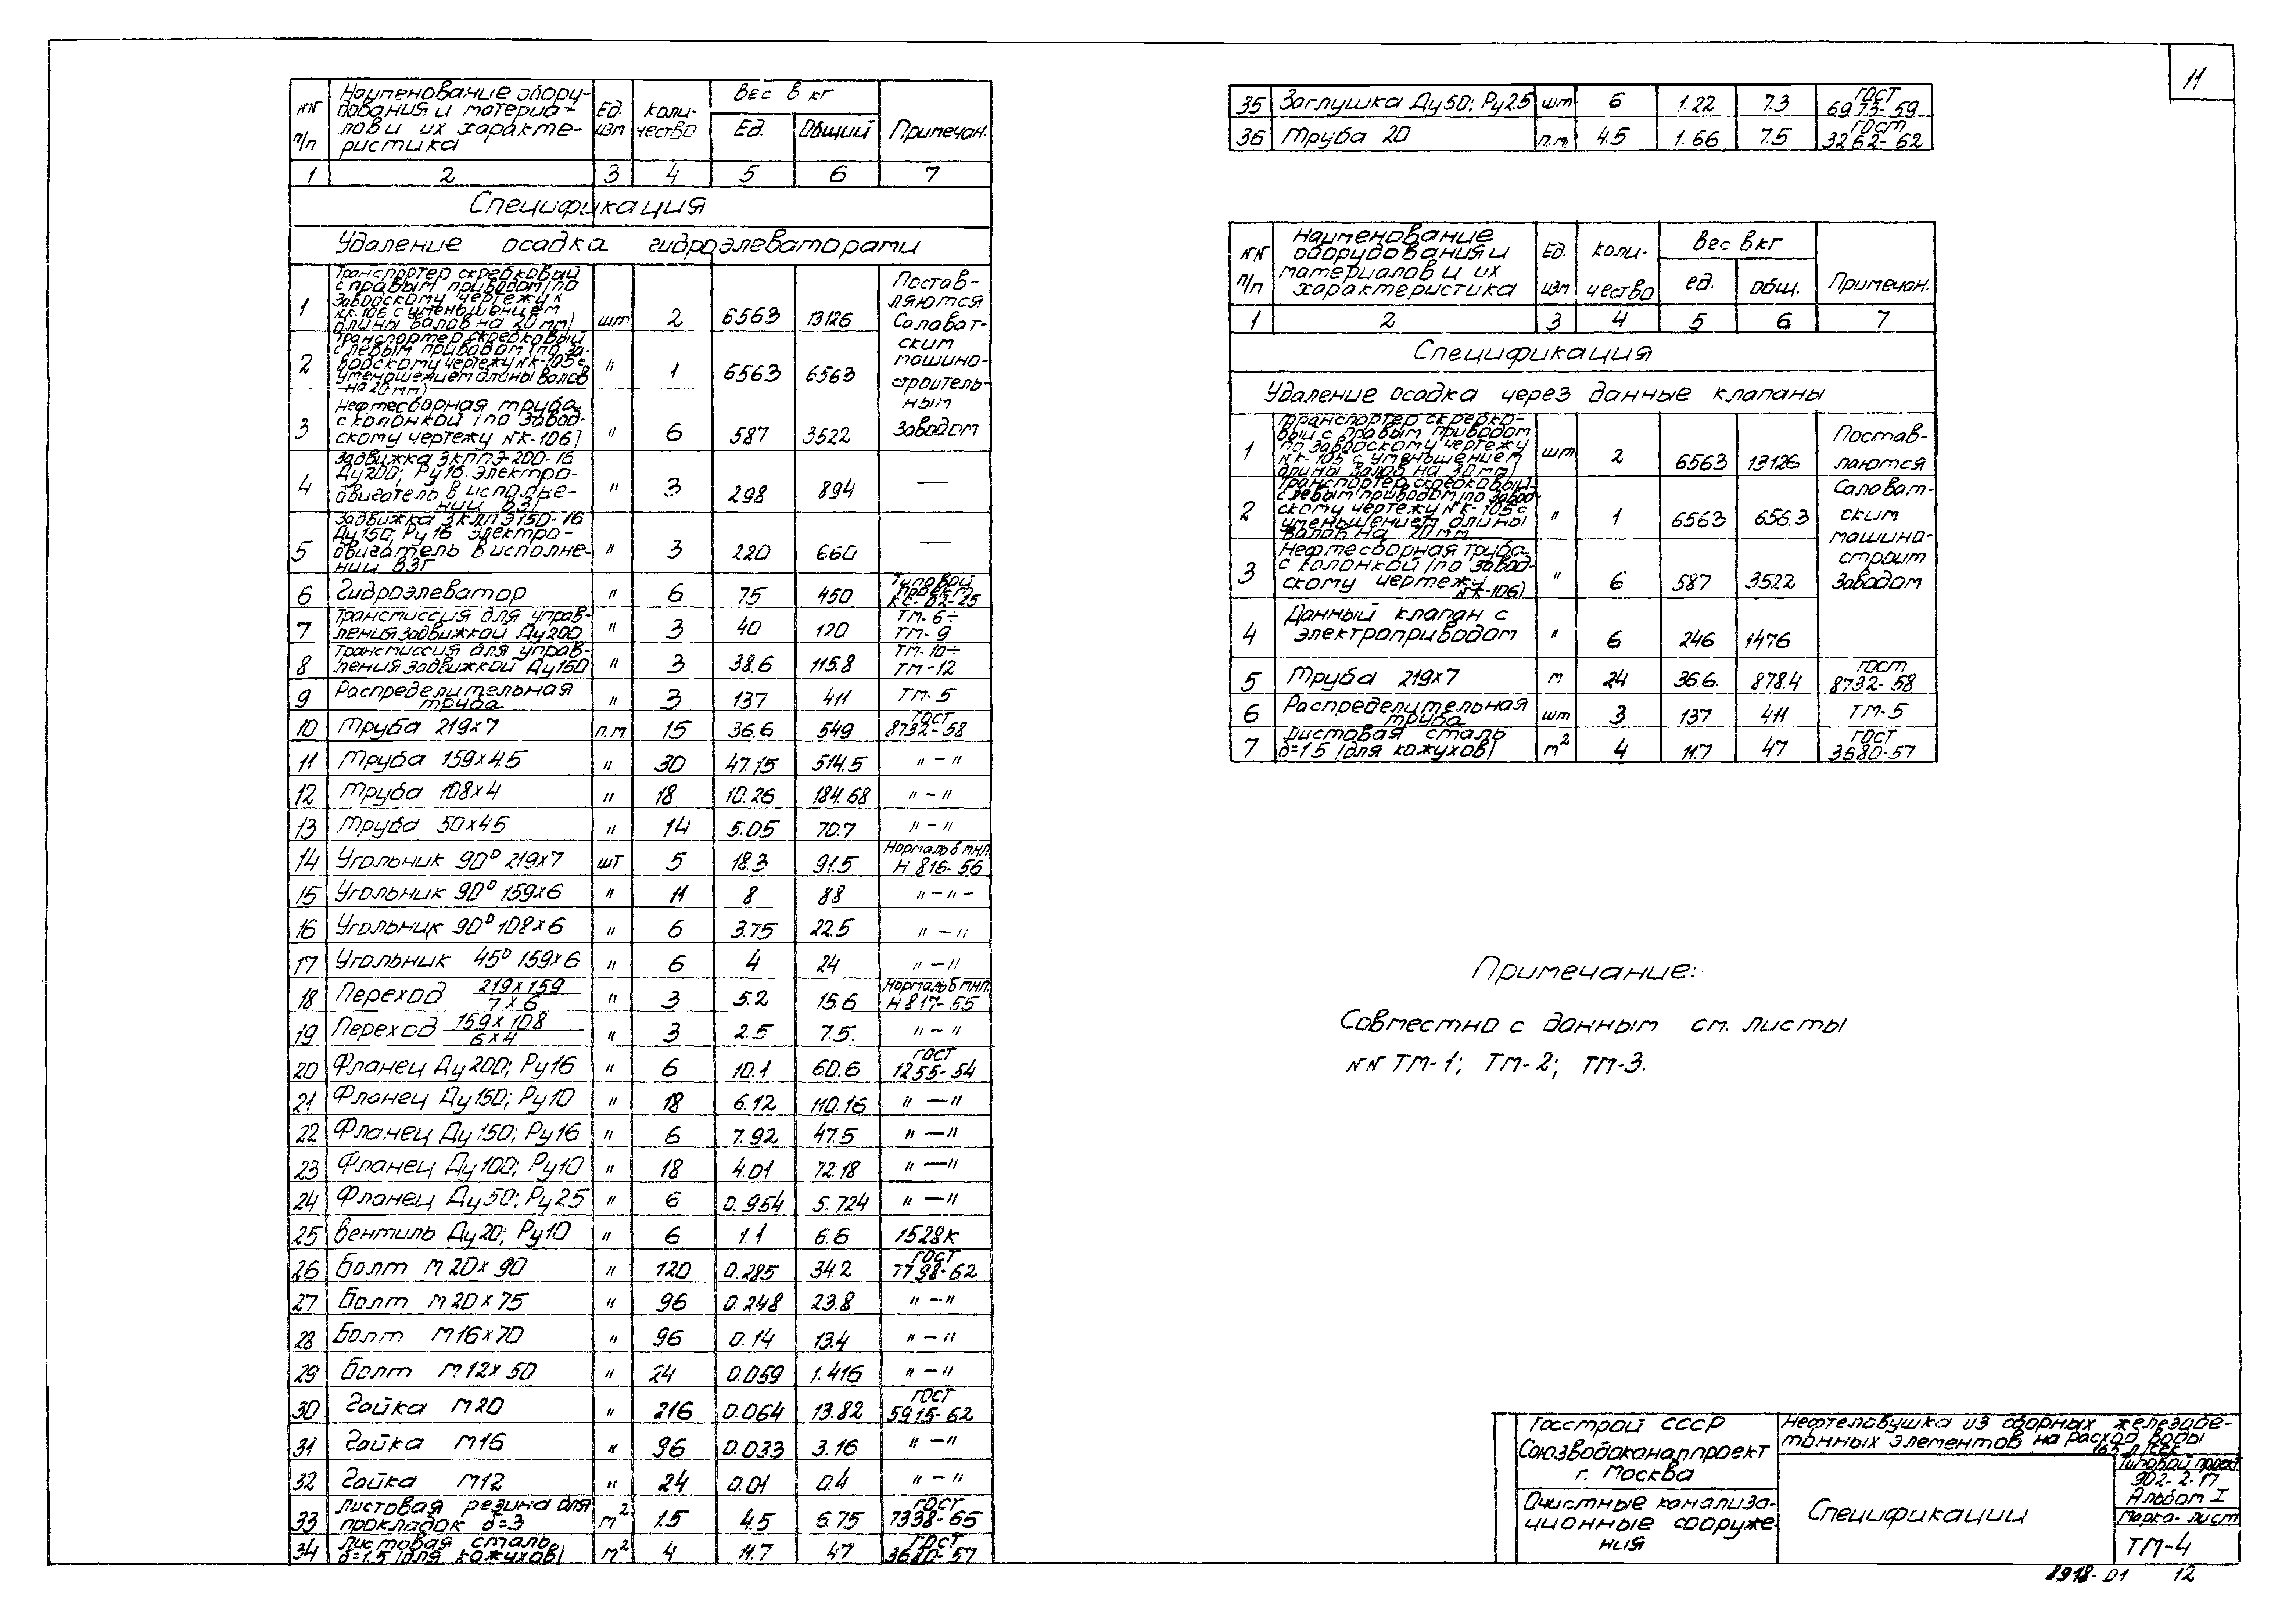 11
NN п/п | Наименование оборудования и материалов и их характеристика | Ед. изм | Количество | Вес в кг Ед. | Вес в кг Общий | Примечан.
1 | 2 | 3 | 4 | 5 | 6 | 7
Спецификация
Удаление осадка гидроэлеваторами
1 | Транспортер скребковый с правым приводом (по заводскому чертежу к NК-105 с уменьшением длины валов на 20 мм) | шт | 2 | 6563 | 13126 | Поставляются Салаватским машиностроительным заводом
2 | Транспортер скребковый с левым приводом (по заводскому чертежу NК-105 с уменьшением длины валов на 20 мм) | " | 1 | 6563 | 6563
3 | Нефтесборная труба с колонкой (по заводскому чертежу NК-106) | " | 6 | 587 | 3522
4 | Задвижка ЗКЛПЭ-200-16 Ду200; Ру16. Электродвигатель в исполнении ВЗГ | " | 3 | 298 | 894 | —
5 | Задвижка ЗКЛПЭ150-16 Ду150; Ру16 Электродвигатель в исполнении ВЗГ | " | 3 | 220 | 660 | —
6 | Гидроэлеватор | " | 6 | 75 | 450 | Типовой проект КС-02-25
7 | Трансмиссия для управления задвижкой Ду200 | " | 3 | 40 | 120 | ТМ-6÷ ТМ-9
8 | Трансмиссия для управления задвижкой Ду150 | " | 3 | 38.6 | 115.8 | ТМ-10÷ ТМ-12
9 | Распределительная труба | " | 3 | 137 | 411 | ТМ-5
10 | Труба 219×7 | п.м. | 15 | 36.6 | 549 | ГОСТ 8732-58
11 | Труба 159×4.5 | " | 30 | 47.15 | 514.5 | " – "
12 | Труба 108×4 | " | 18 | 10.26 | 184.68 | " – "
13 | Труба 50×45 | " | 14 | 5.05 | 70.7 | " – "
14 | Угольник 90° 219×7 | шт | 5 | 18.3 | 91.5 | Нормаль б МНП Н 816-56
15 | Угольник 90° 159×6 | " | 11 | 8 | 88 | " – " –
16 | Угольник 90° 108×6 | " | 6 | 3.75 | 22.5 | " – "
17 | Угольник 45° 159×6 | " | 6 | 4 | 24 | " – "
18 | Переход 219×159 / 7×6 | " | 3 | 5.2 | 15.6 | Нормаль б МНП Н 817-55
19 | Переход 159×108 / 6×4 | " | 3 | 2.5 | 7.5. | " – "
20 | Фланец Ду200; Ру16 | " | 6 | 10.1 | 60.6 | ГОСТ 1255-54
21 | Фланец Ду150; Ру10 | " | 18 | 6.12 | 110.16 | " — "
22 | Фланец Ду150; Ру16 | " | 6 | 7.92 | 47.5 | " — "
23 | Фланец Ду100; Ру10 | " | 18 | 4.01 | 72.18 | " — "
24 | Фланец Ду50; Ру25 | " | 6 | 0.954 | 5.724 | " — "
25 | Вентиль Ду20; Ру10 | " | 6 | 1.1 | 6.6 | 1528к
26 | Болт М20×90 | " | 120 | 0.285 | 34.2 | ГОСТ 7798-62
27 | Болт М20×75 | " | 96 | 0.248 | 23.8 | " – "
28 | Болт М16×70 | " | 96 | 0.14 | 13.4 | " – "
29 | Болт М12×50 | " | 24 | 0.059 | 1.416 | " – "
30 | Гайка М20 | " | 216 | 0.064 | 13.82 | ГОСТ 5915-62
31 | Гайка М16 | " | 96 | 0.033 | 3.16 | " – "
32 | Гайка М12 | " | 24 | 0.01 | 0.4 | " – "
33 | Листовая резина для прокладок δ=3 | м² | 1.5 | 4.5 | 6.75 | ГОСТ 7338-65
34 | Листовая сталь δ=1.5 (для кожухов) | м² | 4 | 11.7 | 47 | ГОСТ 3680-57
35 | Заглушка Ду50; Ру25 | шт | 6 | 1.22 | 7.3 | ГОСТ 6973-59
36 | Труба 20 | п.м. | 4.5 | 1.66 | 7.5 | ГОСТ 3262-62
NN п/п | Наименование оборудования и материалов и их характеристика | Ед. изм. | Количество | Вес в кг ед. | Вес в кг общ. | Примечан.
1 | 2 | 3 | 4 | 5 | 6 | 7
Спецификация
Удаление осадка через данные клапаны
1 | Транспортер скребковый с правым приводом по заводскому чертежу NК-105 с уменьшением длины валов на 30 мм) | шт | 2 | 6563 | 13126 | Поставляются Салаватским машиностроит заводом
2 | Транспортер скребковый с левым приводом (по заводскому чертежу NК-105 с уменьшением длины валов на 20 мм | " | 1 | 6563 | 656.3
3 | Нефтесборная труба с колонкой (по заводскому чертежу NК-106) | " | 6 | 587 | 3522
4 | Данный клапан с электроприводом | " | 6 | 246 | 1476
5 | Труба 219×7 | м | 24 | 36.6. | 878.4 | ГОСТ 8732-58
6 | Распределительная труба | шт | 3 | 137 | 411 | ТМ-5
7 | Листовая сталь δ=1.5 (для кожухов) | м² | 4 | 11.7 | 47 | ГОСТ 3680-57
Примечание:
Совместно с данным см. листы
NN ТМ-1; ТМ-2; ТМ-3.
Госстрой СССР
Союзводоканалпроект
г. Москва
Очистные канализа-
ционные сооруже-
ния
Нефтеловушка из сборных железобе-
тонных элементов на расход воды
165 л/сек
Спецификации
Типовой проект
902-2-17
Альбом I
Марка-лист
ТМ-4
8918-01 12